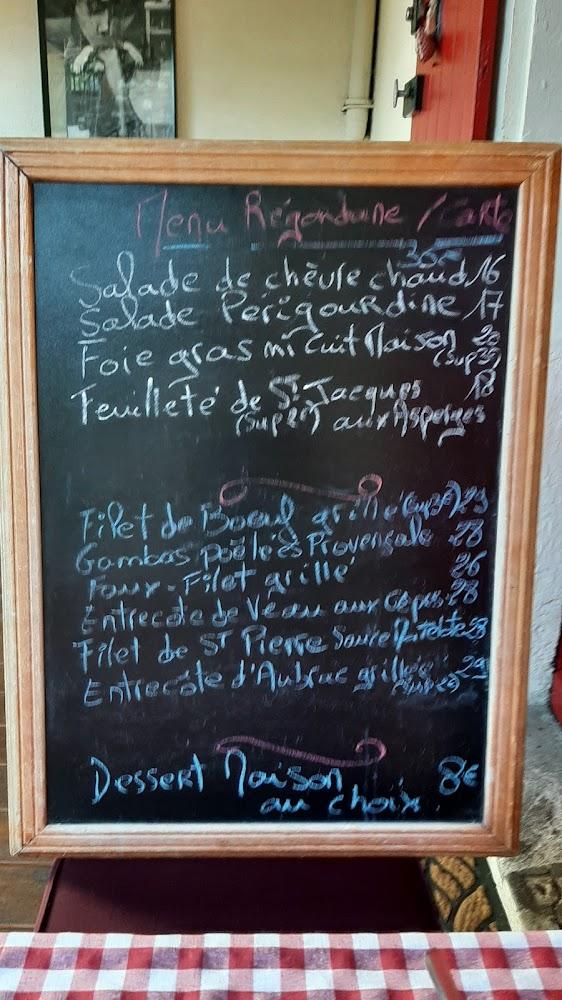 Menu Régordane / Carte
35€
Salade de chèvre chaud 16
Salade Périgourdine 17
Foie gras mi cuit Maison 20
(Sup 3€)
Feuilleté de St Jacques 18
(Sup 2€) aux Asperges
Filet de Boeuf grillé (Sup 3€) 29
Gambas poêlées Provençale 28
Faux-Filet grillé 26
Entrecôte de Veau aux Cèpes 28
Filet de ST Pierre Sauce 28
Entrecôte d'Aubrac grillée 29
Dessert Maison 8€
au choix